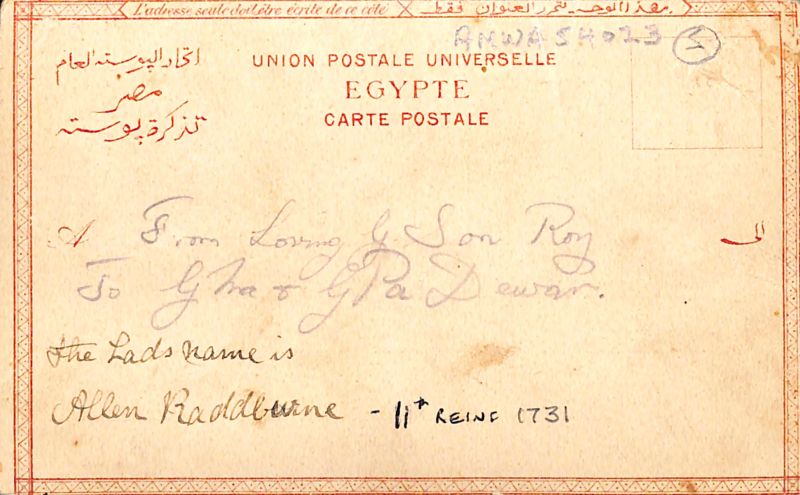 L'adresse seule doit être écrite de ce côté
هذا الوجه يتحرر العنوان فقط
ANWASH023 5
اتحاد البوسته العام
UNION POSTALE UNIVERSELLE
مصر
EGYPTE
تذكرة بوسته
CARTE POSTALE
A
From Loving G Son Roy
الى
To GMa & GPa Dewar.
the Lads name is
Allen Raddburne - 11th REINF 1731